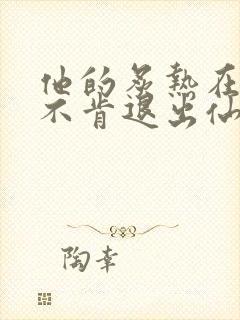 他的炙热在
不肯退出仙
陶幸